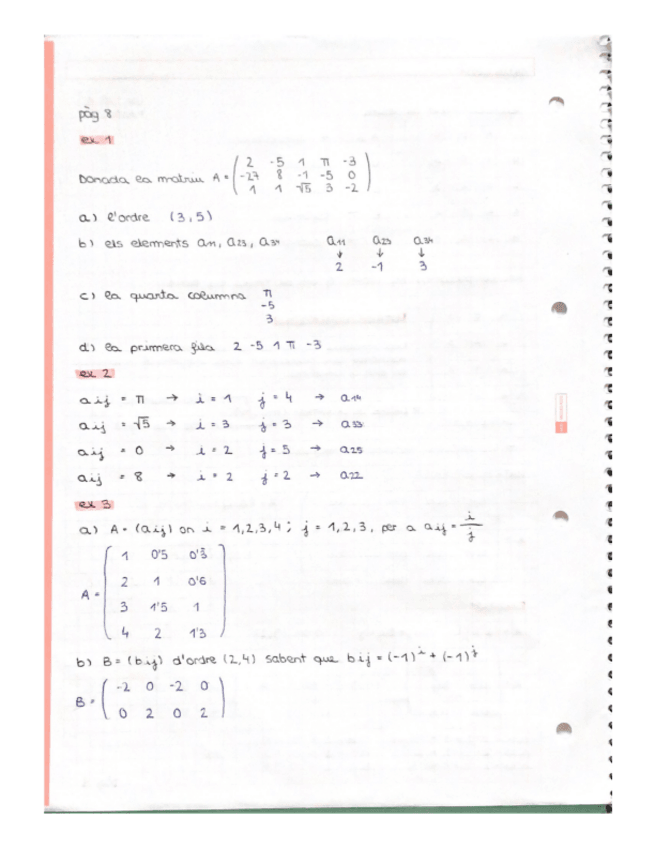 pàg 8
ex 1
Donada la matriu A = ( 2 -5 1 π -3
-27 8 -1 -5 0
1 1 √5 3 -2 )
a) l'ordre (3,5)
b) els elements a11, a23, a34 a11 a23 a34
↓ ↓ ↓
2 -1 3
c) la quarta columna π
-5
3
d) la primera fila 2 -5 1 π -3
ex 2
aij = π → i = 1 j = 4 → a14
aij = √5 → i = 3 j = 3 → a33
aij = 0 → i = 2 j = 5 → a25
aij = 8 → i = 2 j = 2 → a22
ex 3
a) A = (aij) on i = 1,2,3,4 ; j = 1,2,3, per a aij = i/j
A = ( 1 0'5 0'3̄
2 1 0'6
3 1'5 1
4 2 1'3 )
b) B = (bij) d'ordre (2,4) sabent que bij = (-1)^i + (-1)^j
B = ( -2 0 -2 0
0 2 0 2 )